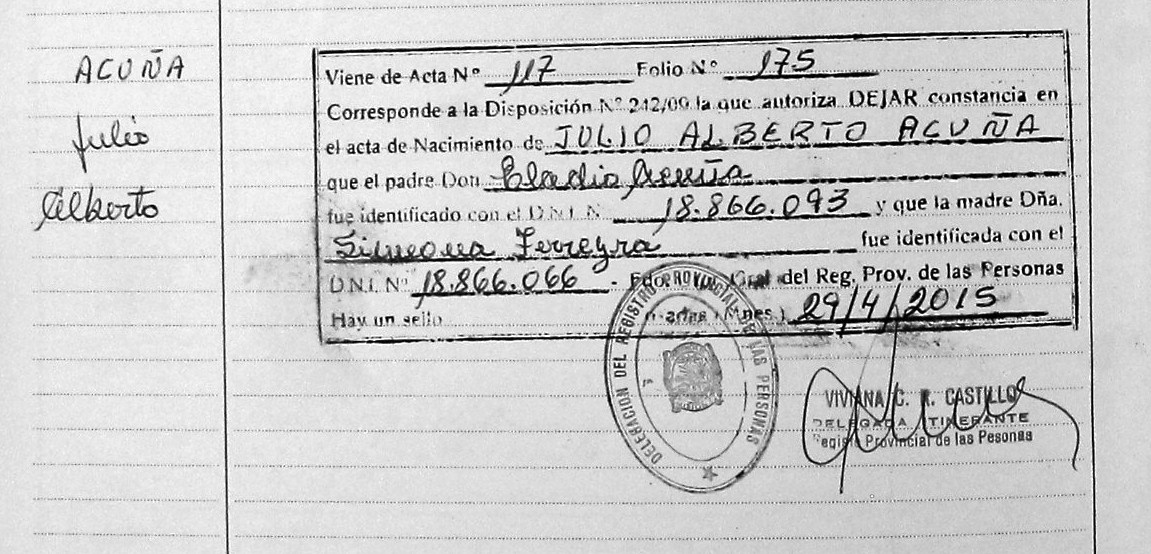 ACUÑA
Julio
Alberto
Viene de Acta Nº 117 Folio Nº 175
Corresponde a la Disposición Nº 242/09 la que autoriza DEJAR constancia en
el acta de Nacimiento de JULIO ALBERTO ACUÑA
que el padre Don Eladio Acuña
fue identificado con el D.N.I. N 18.866.093 y que la madre Dña.
Simeona Ferreyra fue identificada con el
D.N.I. Nº 18.866.066 - Gral del Reg. Prov. de las Personas
Hay un sello (Mnes.) 29/4/2015
DELEGACION DEL REGISTRO PROVINCIAL DE LAS PERSONAS
VIVIANA C. R. CASTILLO
DELEGADA ITINERANTE
Registro Provincial de las Pesonas